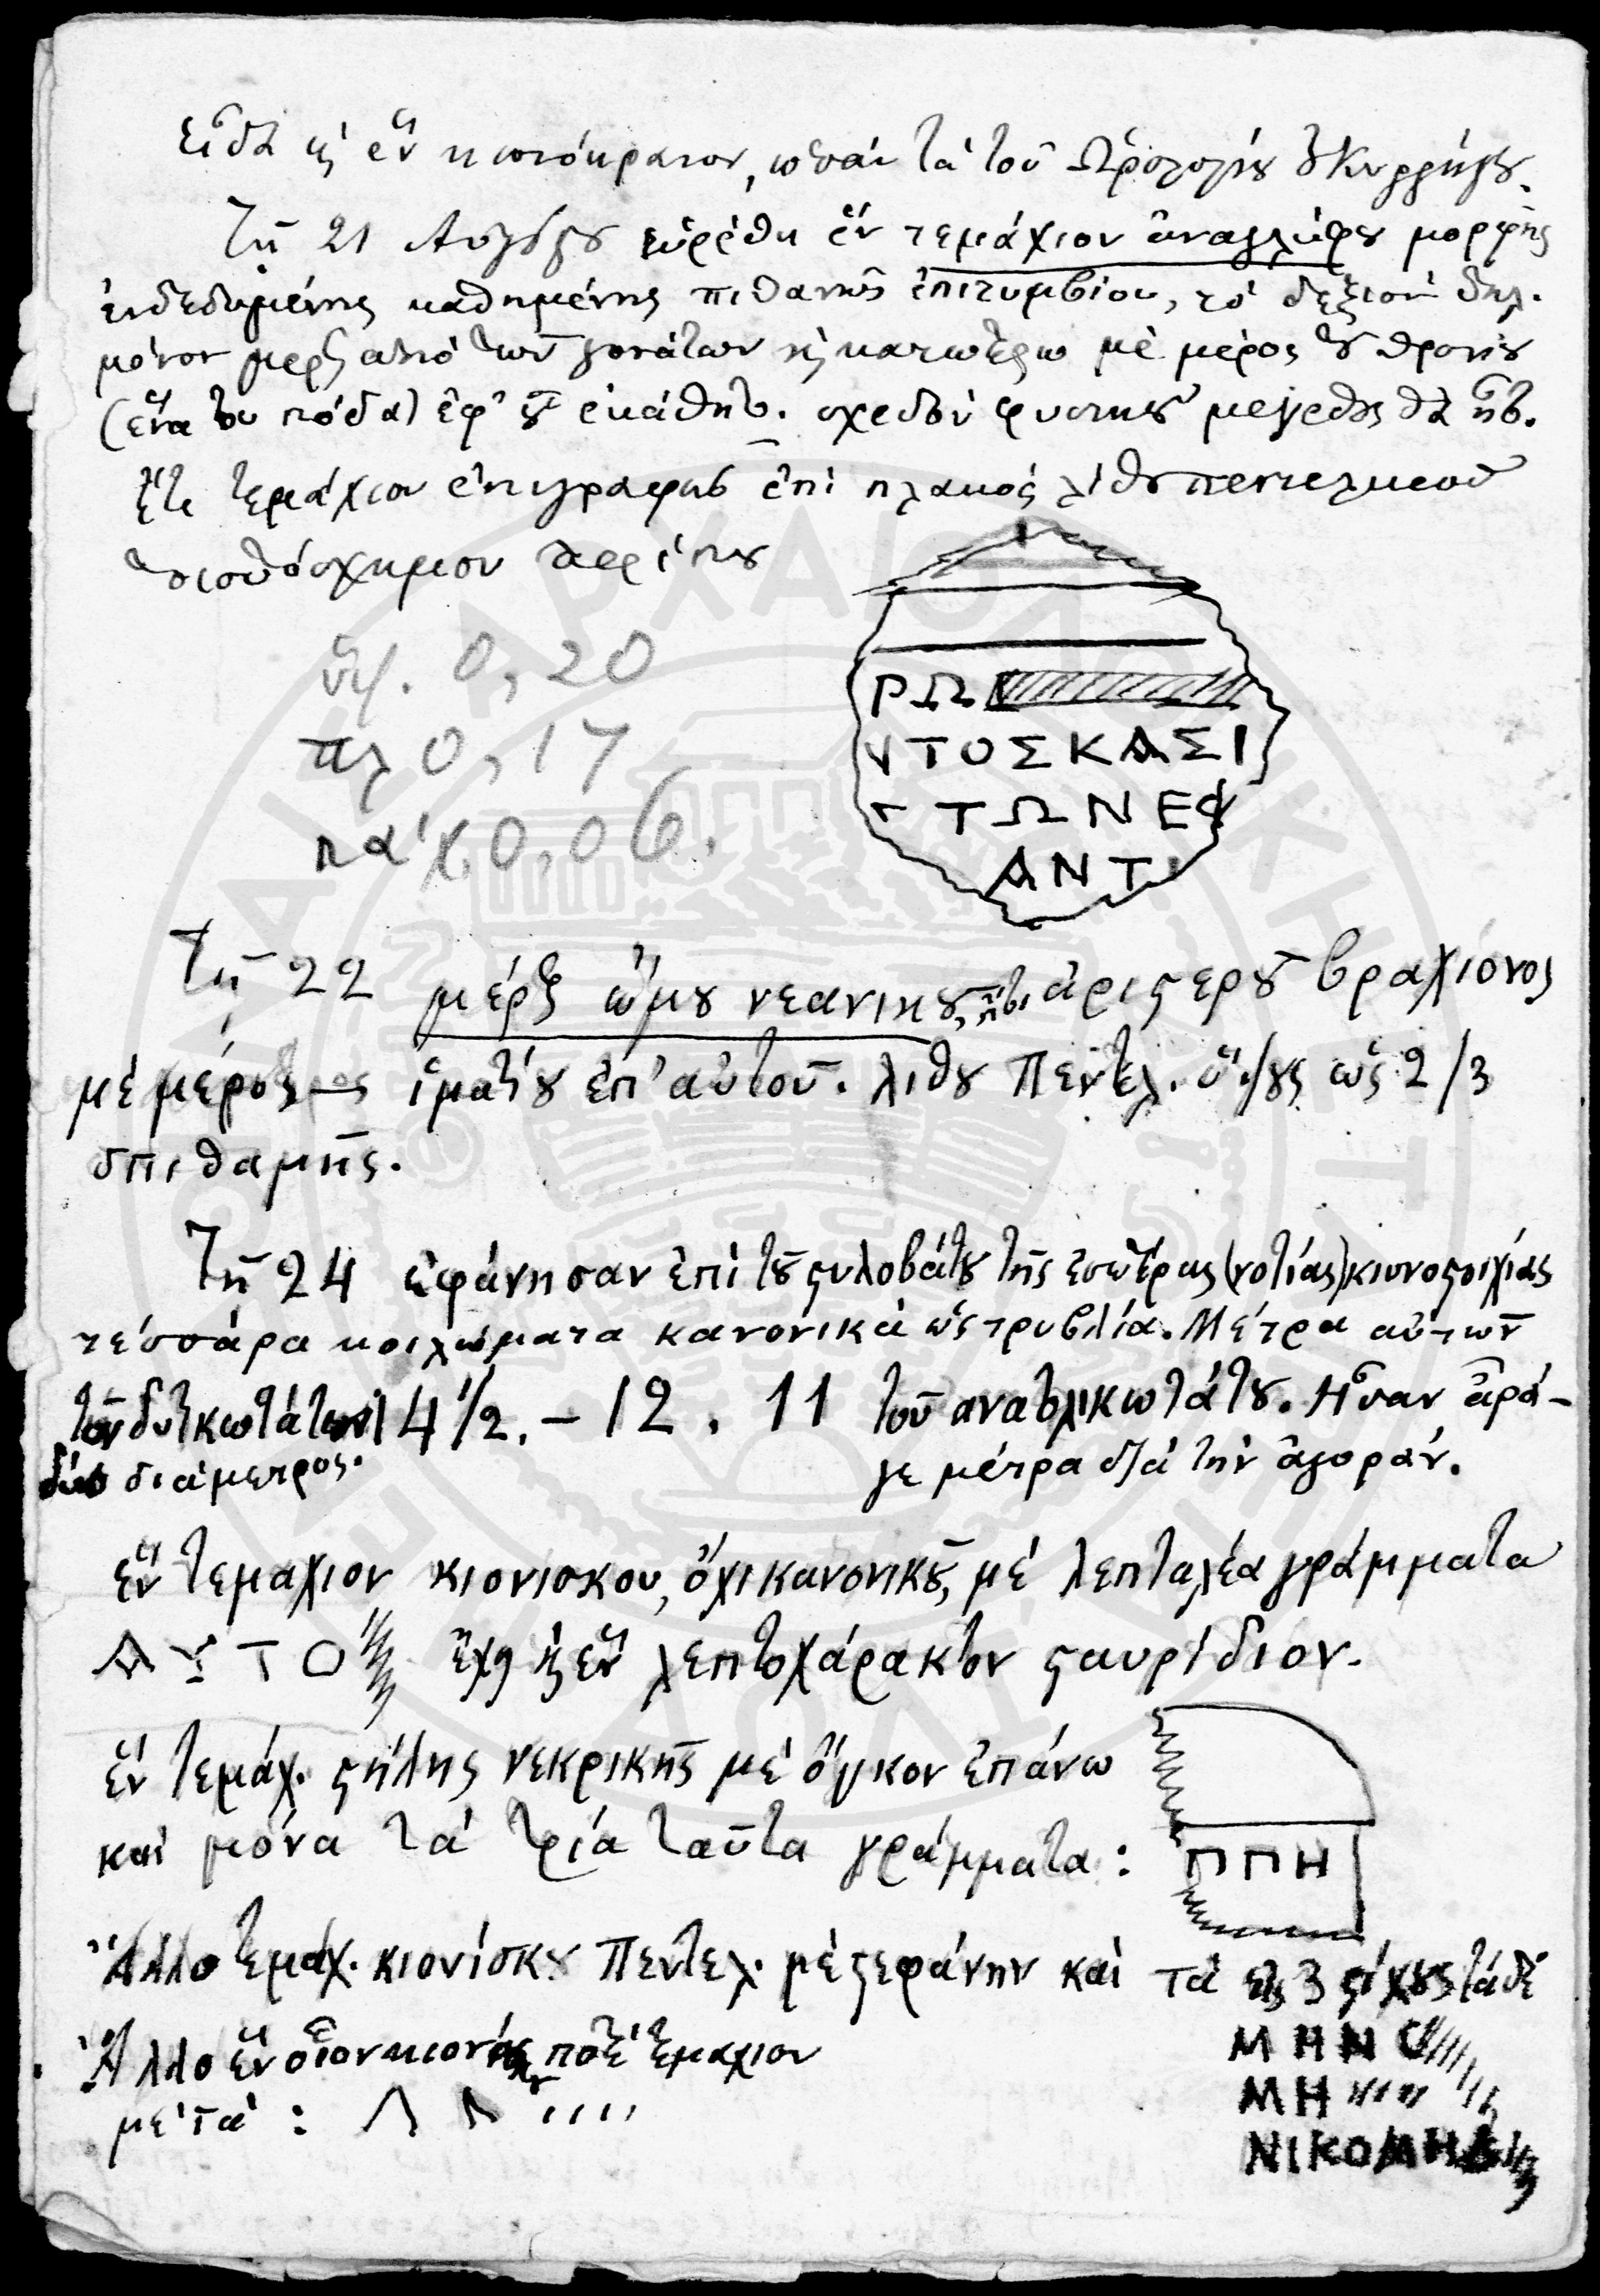 εἶδα κ ἓν κιονόκρανον, ὡσὰν τὰ τοῦ Ὡρολογίου Κυρρήστου.
Τῇ 21 Αυγούστου εὑρέθη ἓν τεμάχιον ἀναγλύφου μορφῆς
ἐνδεδυμένης καθημένης πιθανῶς ἐπιτυμβίου, τὸ δεξιὸν δηλ.
μόνον μέρος ἀπὸ τῶν γονάτων κ κατωτέρω μὲ μέρος τοῦ θρονίου
(ἕνα του πόδα) ἐφ' οὗ ἐκάθητο. σχεδὸν φυσικοῦ μεγέθους θὰ ἦτο.
ἔτι τεμάχιον ἐπιγραφῆς ἐπὶ πλακὸς λίθου πεντελικοῦ
ὕψ. 0,20
πλ 0,17
πάχ. 0,06.
ΡΩΝ
ΝΤΟΣΚΑΣΙ
ΤΩΝΕΦ
ΑΝΤ
Τῇ 22 μέρος ὤμου νεανικοῦ, ἀριστεροῦ βραχίονος
μὲ μέρος ἱματίου ἐπ' αὐτοῦ. λίθου Πεντελ. ὕψους ὡς 2/3
σπιθαμῆς.
Τῇ 24 ἐφάνησαν ἐπὶ τοῦ στυλοβάτου τῆς ἐσωτέρας (νοτίας) κιονοστοιχίας
τέσσάρα κοιλώματα κανονικὰ ὡς τρυβλία. Μέτρα αὐτῶν
τοῦ δυτικωτάτου 14 1/2. – 12. 11 τοῦ ανατολικωτάτου. Ἦσαν ἆρά-
διάμετρος. γε μέτρα διὰ τὴν ἀγοράν.
ἓν τεμαχιον κιονισκου, ὄχι κανονικοῦ, μὲ λεπταλέα γράμματα
ΑΥΤΟ ἔχει κ ἓν λεπτοχάρακτον σταυρίδιον.
ἓν τεμάχ. στήλης νεκρικῆς μὲ ὄγκον ἐπάνω
καὶ μόνα τὰ τρία ταῦτα γράμματα:
ΠΠΗ
Ἄλλο τεμάχ. κιονίσκου Πεντελ. μὲ στεφάνην καὶ τὰ εἰς 3 στίχους τάδε
ΜΗΝΟ
ΜΗ
ΝΙΚΟΜΗΔ
Ἄλλο ἓν οἷον τεμαχιον
μὲ τὰ: Λ Λ